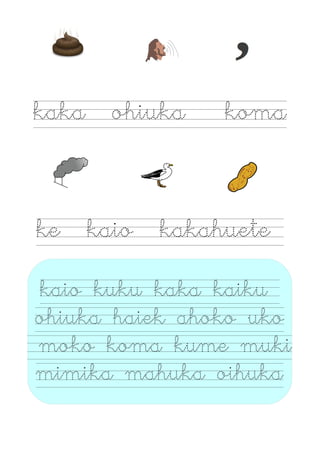 kaka ohiuka koma
ke kaio kakahuete
kaio kuku kaka kaiku
ohiuka haiek ahoko uko
moko koma kume muki
mimika mahuka oihuka